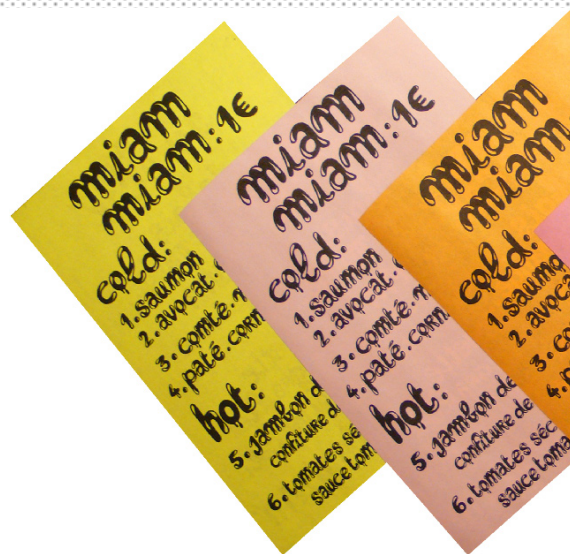 miam
miam:1€
cold:
1.saumon
2.avocat.
3.comté.
4.paté.corn
hot:
5.jambon d
confiture d
6.tomates sé
sauce tom
miam
miam:1€
cold:
1.saumon
2.avocat.
3.comté.
4.paté.corn
hot:
5.jambon de
confiture de
6.tomates séc
sauce toma
miam
miam
cold:
1.saumo
2.avoca
3.co
4.p